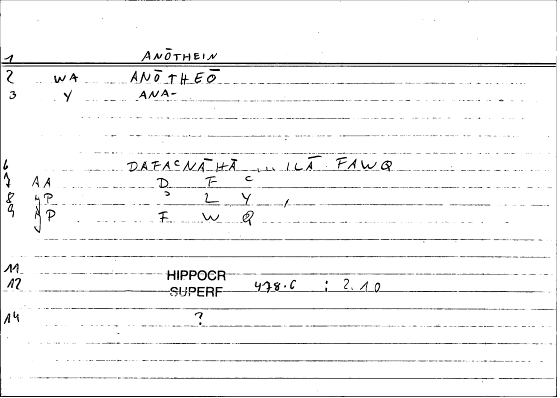 1 ANŌTHEIN
2 WA ANŌTHEŌ
3 Y ANA-
6 DAFACNĀHĀ ... ILĀ FAWQ
7 AA D F C
8 yP ? L Y ,
9 yP F W Q
11 HIPPOCR
12 SUPERF 478.6 : 2.10
14 ?